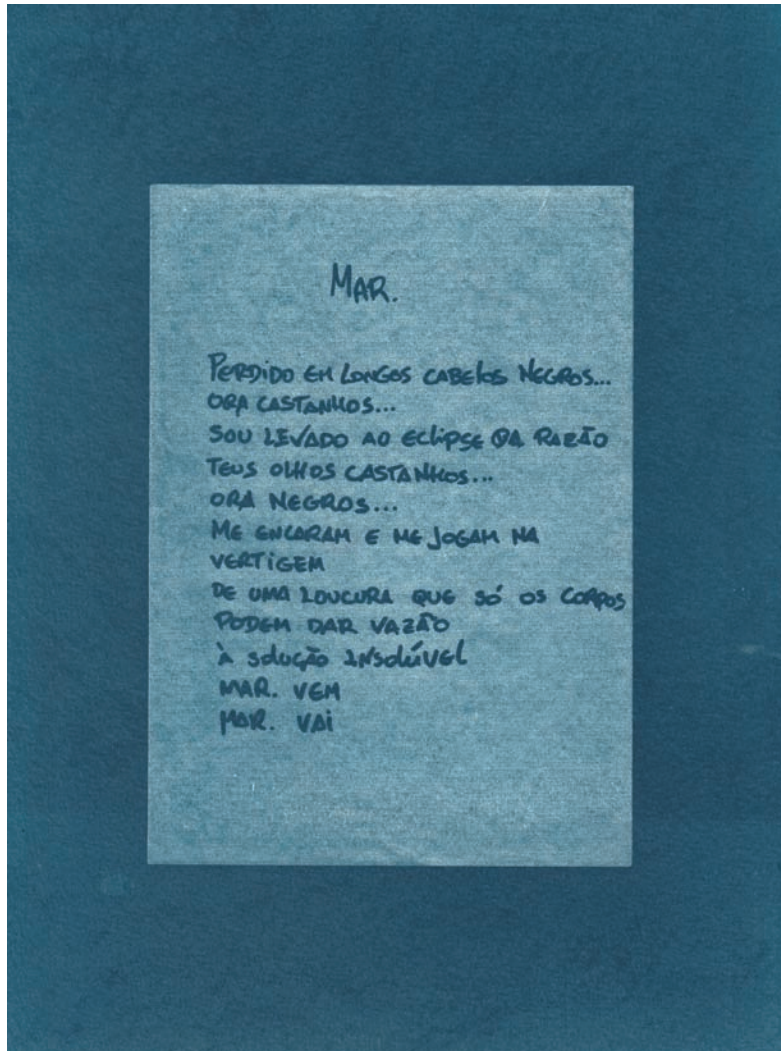 MAR.
PERDIDO EM LONGOS CABELOS NEGROS...
ORA CASTANHOS...
SOU LEVADO AO ECLIPSE DA RAZÃO
TEUS OLHOS CASTANHOS...
ORA NEGROS...
ME ENCARAM E ME JOGAM NA
VERTIGEM
DE UMA LOUCURA QUE SÓ OS CORPOS
PODEM DAR VAZÃO
À SOLUÇÃO INSOLÚVEL
MAR. VEM
MAR. VAI